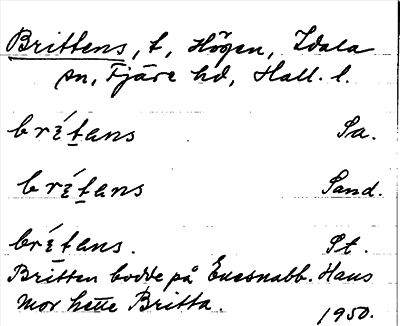 Brittens, t, Högen, Idala
sn, Fjäre hd, Hall. l.
brítans Sa.
brítans Sand.
brítans. St.
Britten bodde på Enesnabb. Hans
mor hette Britta.
1950.